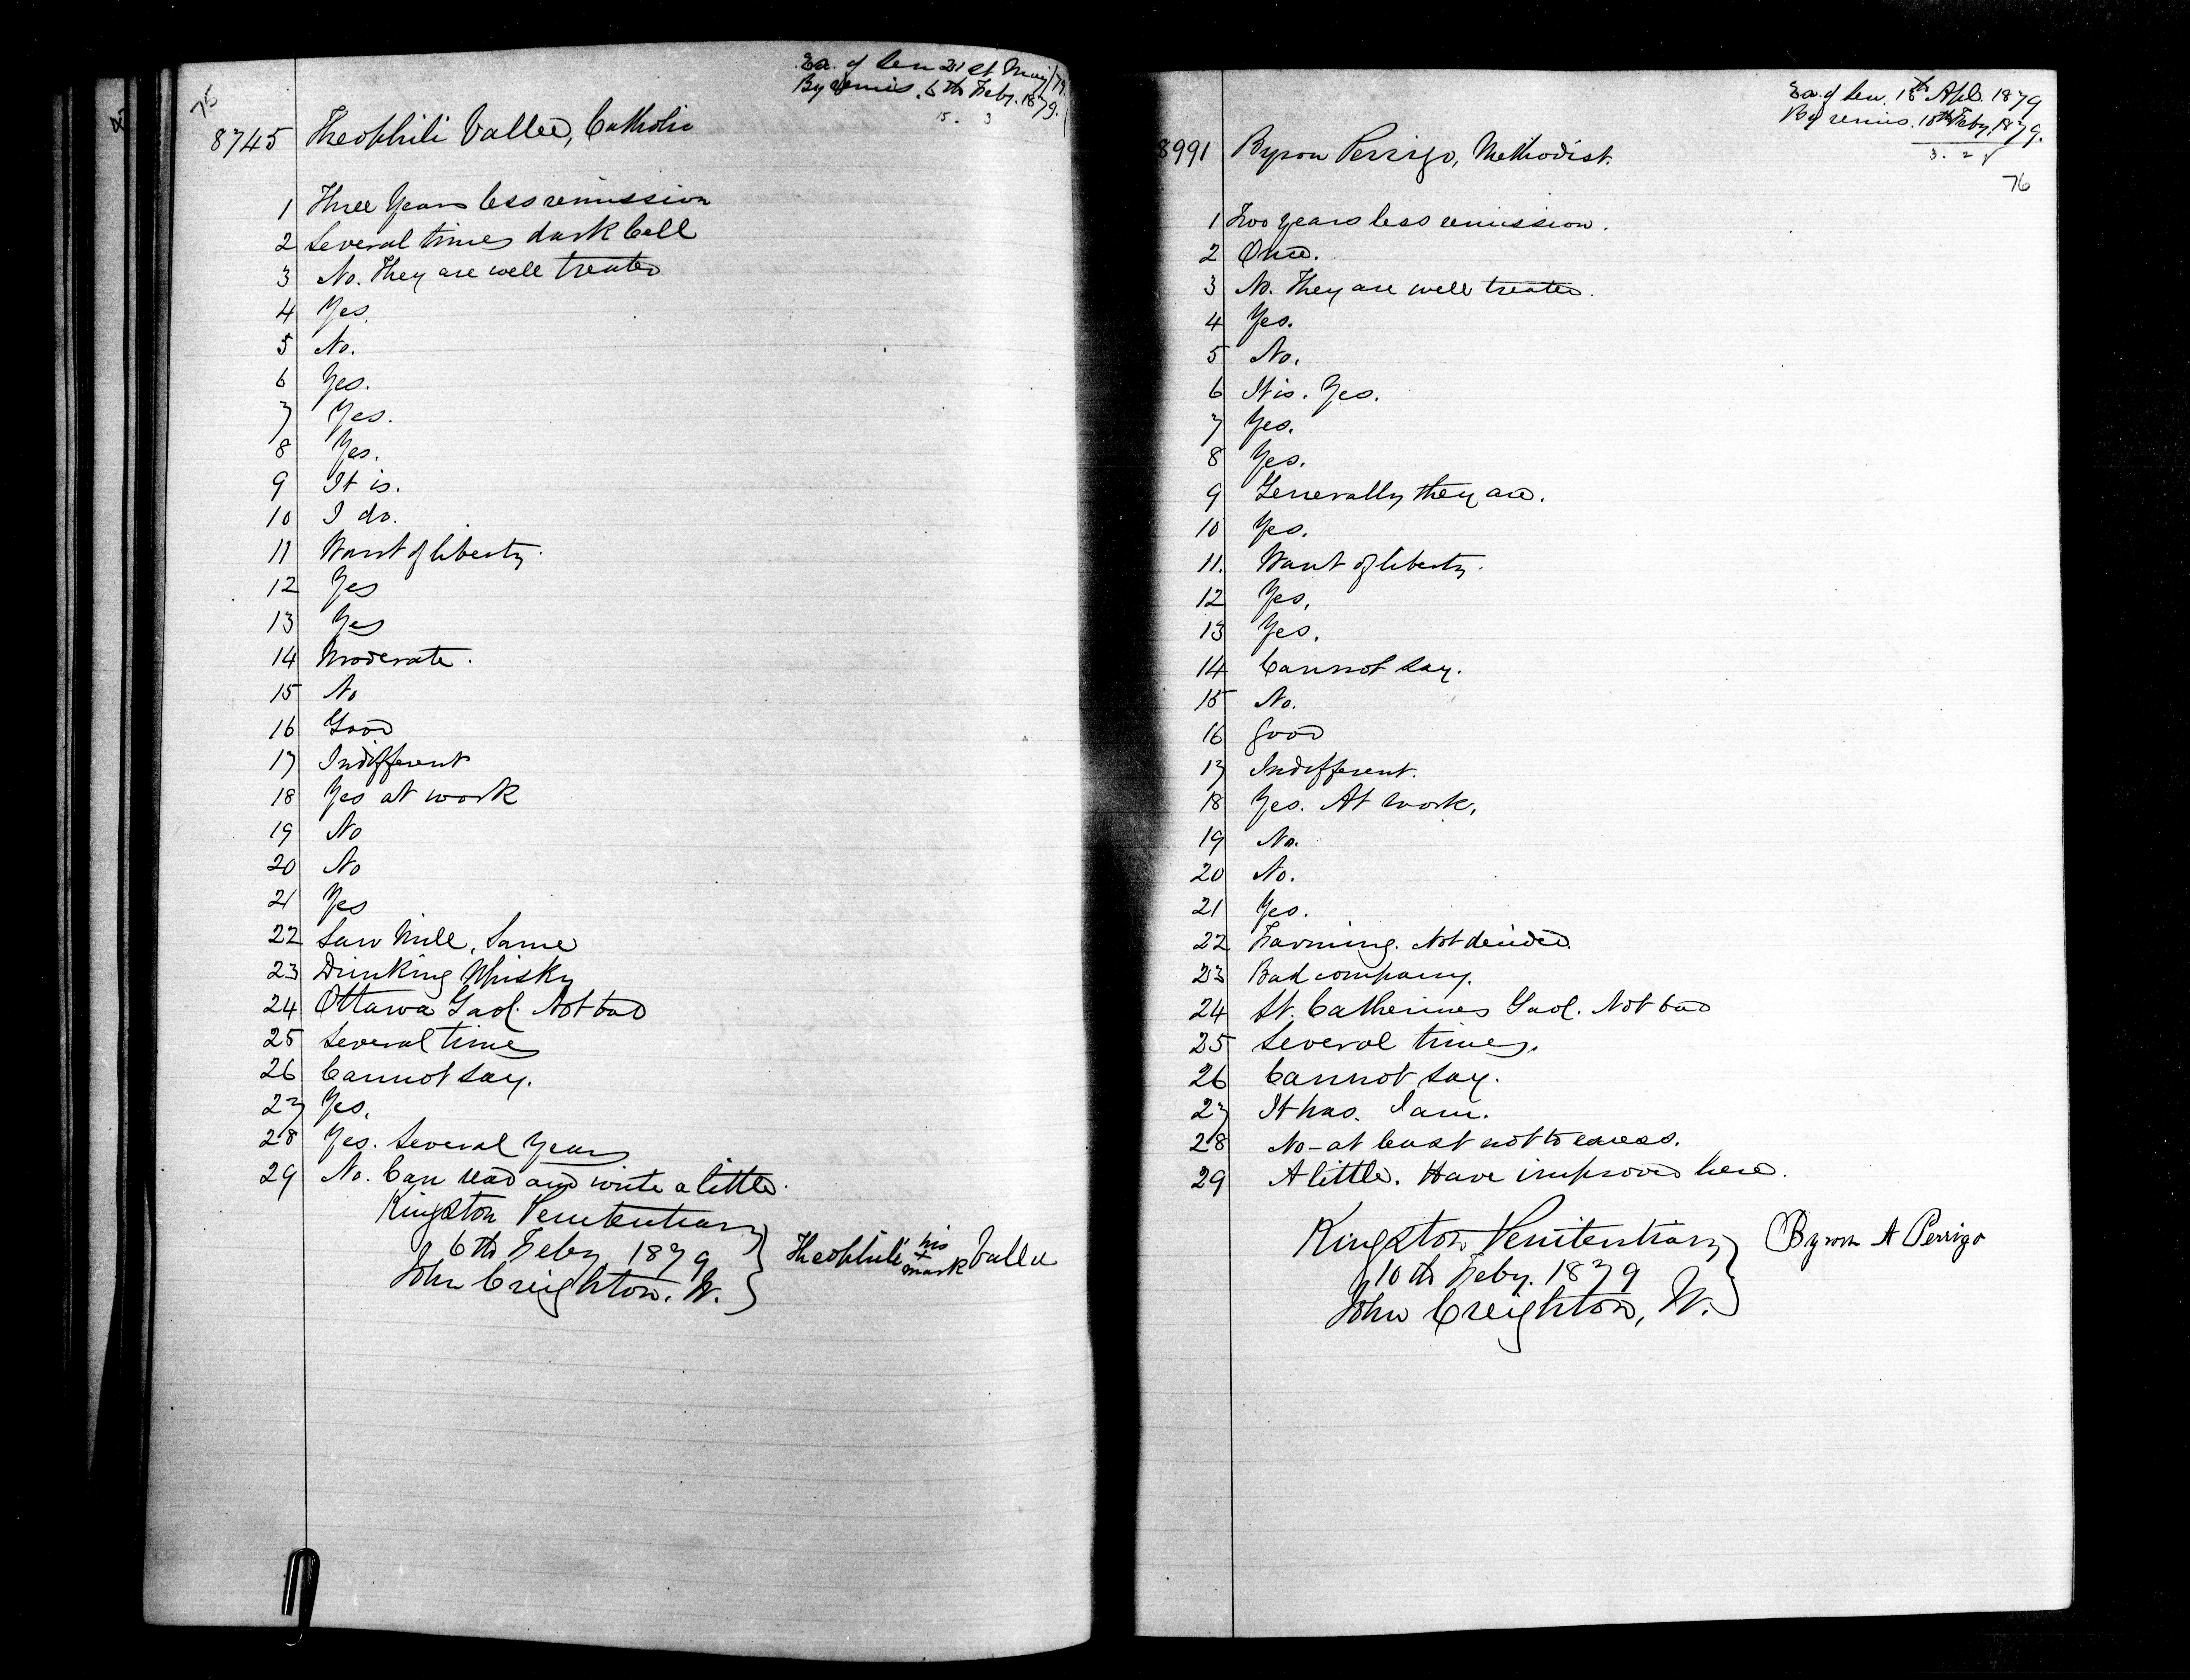 76
Ex. of Sen 21st May/79.
By remis. 6th Feby. 1879.
15. 3
8745 Theophili Vallee, Catholic
1 Three Years less remission
2 Several times dark Cell
3 No. They are well treated
4 Yes.
5 No.
6 Yes.
7 Yes.
8 Yes.
9 It is.
10 I do.
11 Want of liberty.
12 Yes
13 Yes
14 Moderate.
15 No
16 Good
17 Indifferent
18 Yes at work
19 No
20 No
21 Yes
22 Saw Mill, Same
23 Drinking Whisky
24 Ottawa Gaol. Not bad
25 Several times
26 Cannot say.
27 Yes.
28 Yes. Several Years
29 No. Can read and write a little.
Kingston Penitentiary
6th Feby 1879
John Creighton. W.
Theophili his + mark Vallee
Ex. of Sen. 18th Apl. 1879
By remis. 10th Feby, 1879.
3. 2
76
8991 Byron Perrigo, Methodist.
1 Two years less remission.
2 Once.
3 No. They are well treated.
4 Yes.
5 No.
6 It is. Yes.
7 Yes.
8 Yes.
9 Generally they are.
10 Yes.
11. Want of liberty.
12 Yes,
13 Yes.
14 Cannot say.
15 No.
16 Good
17 Indifferent.
18 Yes. At work,
19 No.
20 No.
21 Yes.
22 Farming. Not decided.
23 Bad company.
24 St. Catherines Gaol. Not bad
25 Several times.
26 Cannot say.
27 It has. I am.
28 No - at least not to excess.
29 A little. Have improved here.
Kingston Penitentiary
10th Feby. 1879
John Creighton, W.
Byron A Perrigo